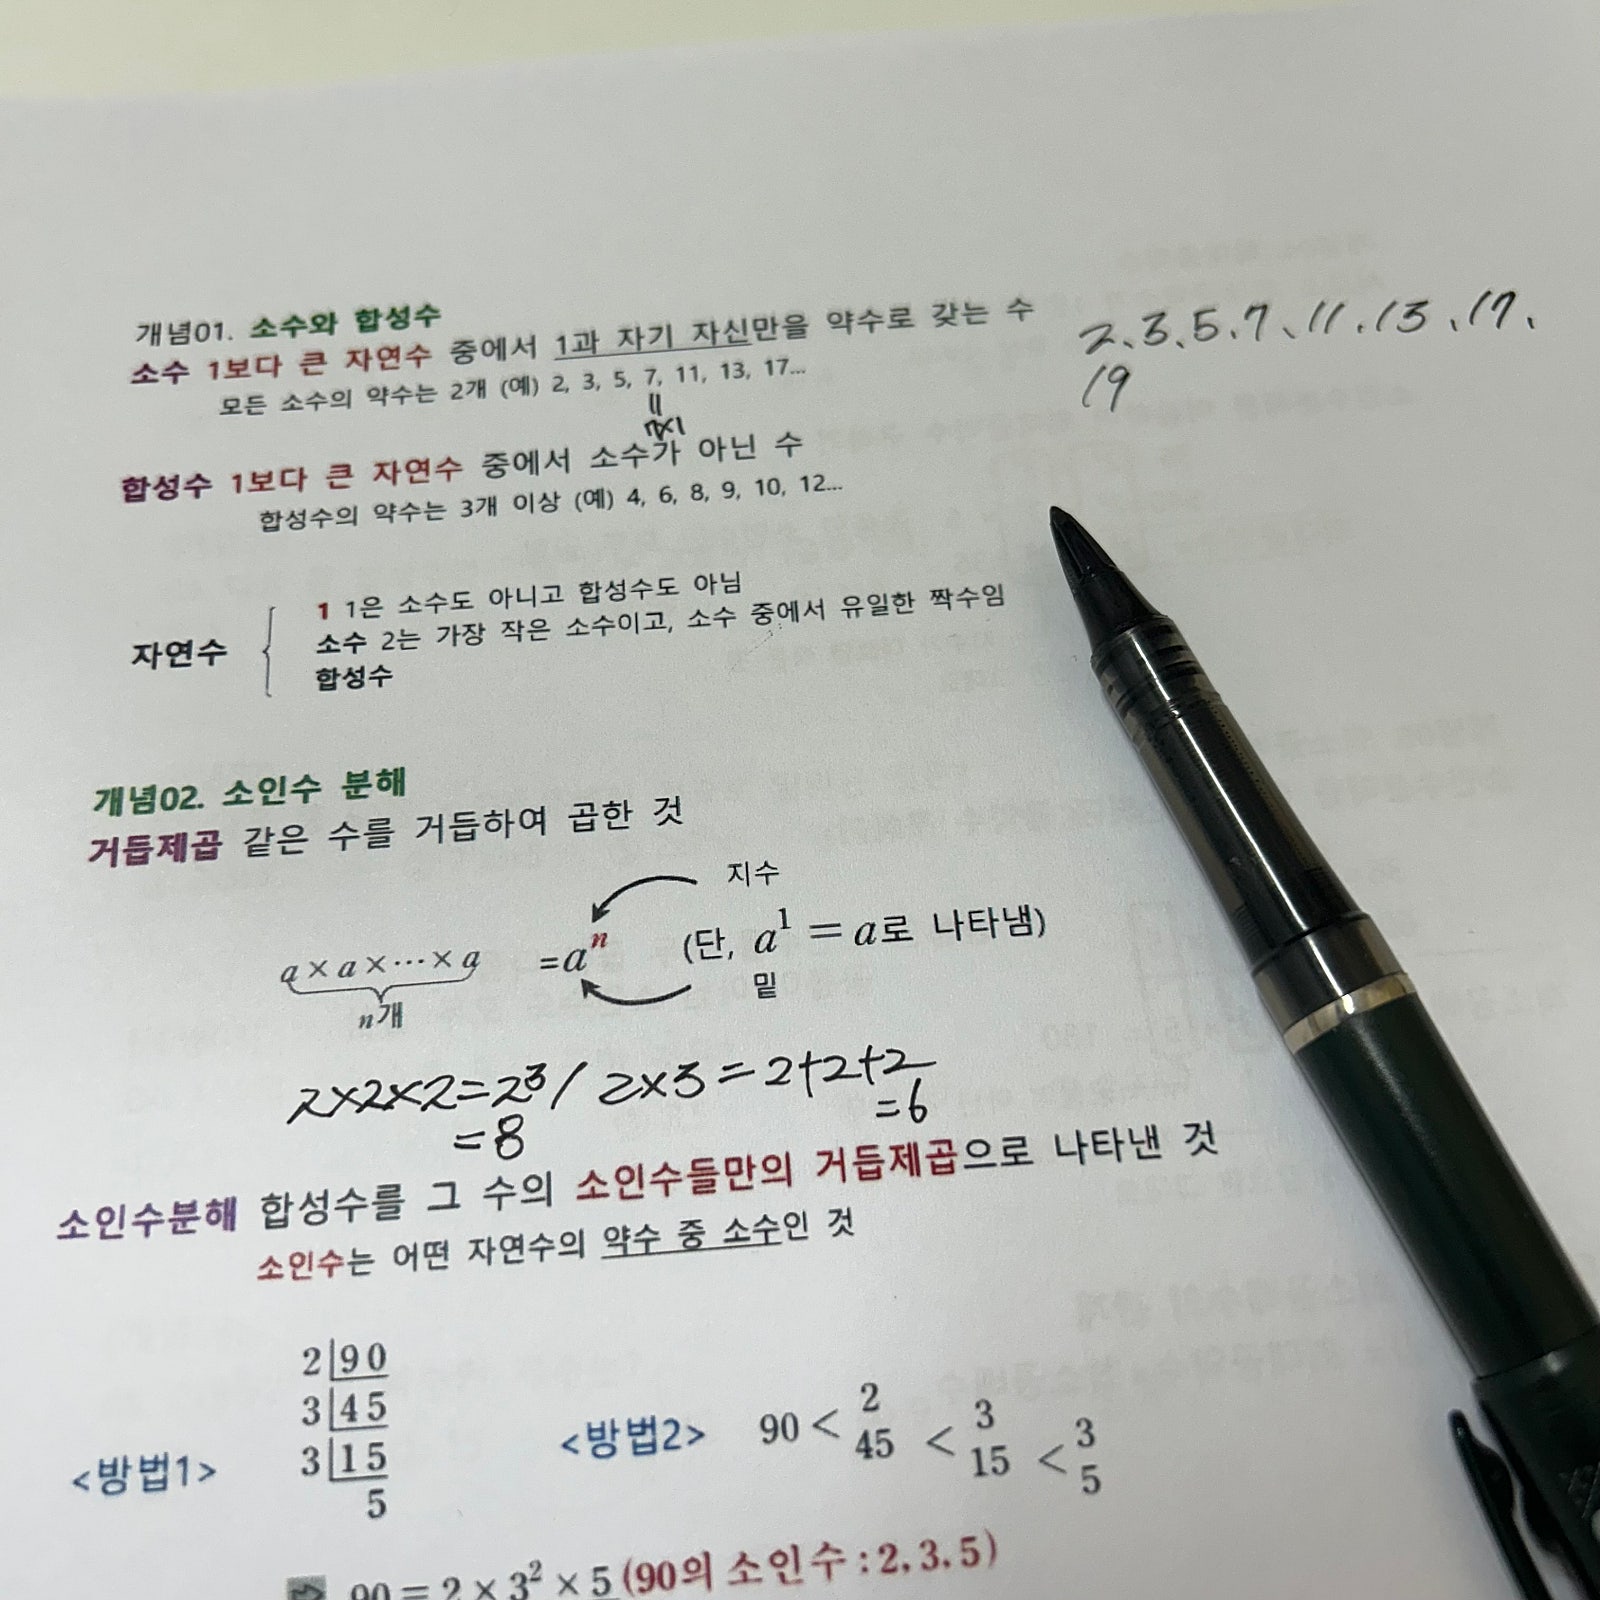 개념01. 소수와 합성수
소수 1보다 큰 자연수 중에서 1과 자기 자신만을 약수로 갖는 수
모든 소수의 약수는 2개 (예) 2, 3, 5, 7, 11, 13, 17...
2, 3, 5, 7, 11, 13, 17,
19
=
7×1
합성수 1보다 큰 자연수 중에서 소수가 아닌 수
합성수의 약수는 3개 이상 (예) 4, 6, 8, 9, 10, 12...
자연수
1 1은 소수도 아니고 합성수도 아님
소수 2는 가장 작은 소수이고, 소수 중에서 유일한 짝수임
합성수
개념02. 소인수 분해
거듭제곱 같은 수를 거듭하여 곱한 것
지수
a×a×⋯×a =aⁿ (단, a¹ = a로 나타냄)
n개
밑
2×2×2=2³ / 2×3=2+2+2
=8 =6
소인수분해 합성수를 그 수의 소인수들만의 거듭제곱으로 나타낸 것
소인수는 어떤 자연수의 약수 중 소수인 것
<방법1>
2 90
3 45
3 15
5
<방법2> 90 < 2 45 < 3 15 < 3 5
90 = 2 × 3² × 5 (90의 소인수 : 2, 3, 5)